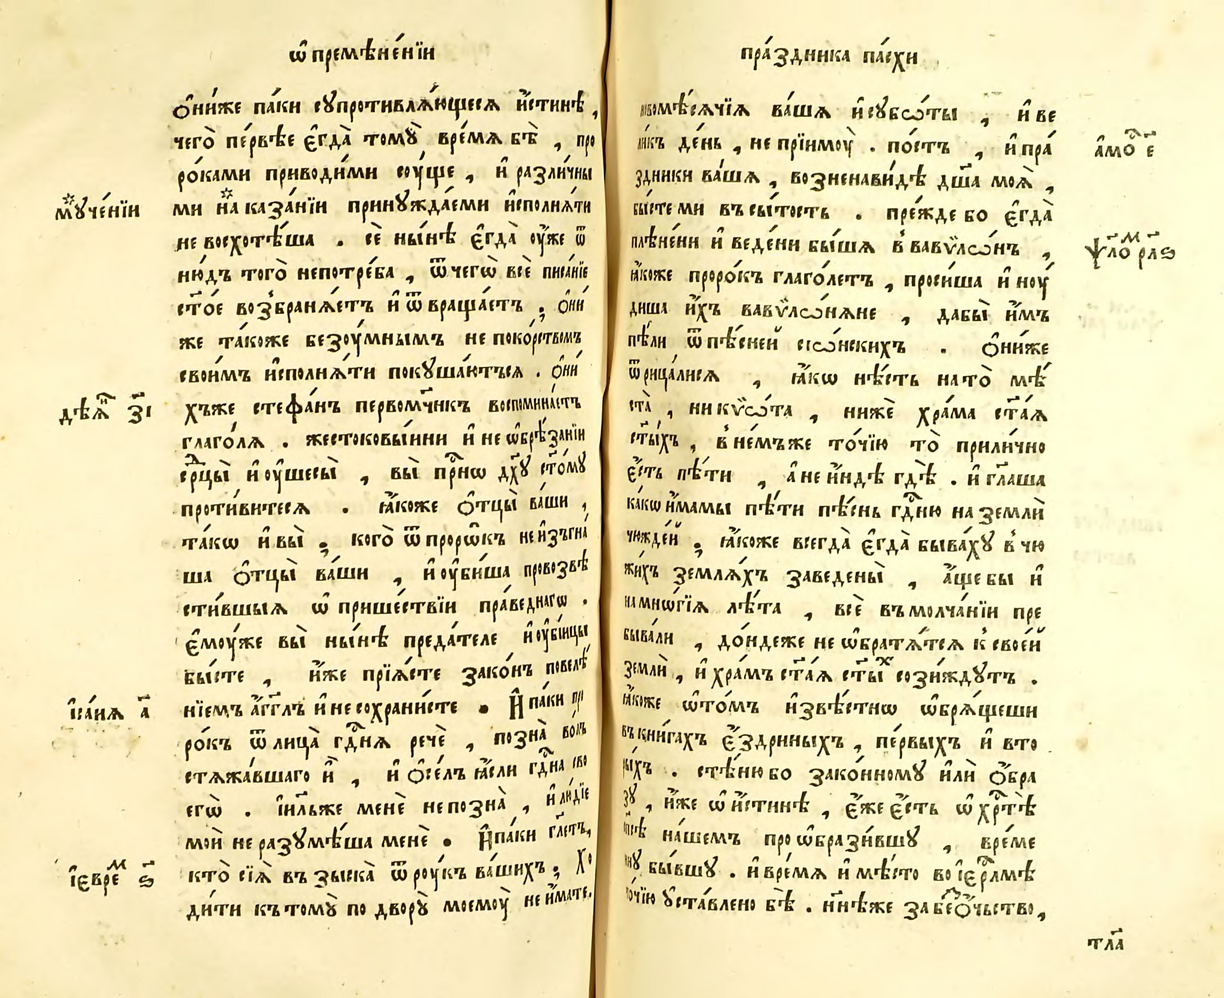 ѿ премѣне́нїи
ѻ҆ни́же па́ки сꙋпротивлѧ́ющесѧ и҆́стинѣ ,
чего̀ пе́рвѣе є҆гда̀ томꙋ̀ вре́мѧ бѣ̀ , про
ро́ками приводи́ми соу́ще , и҆ разли́чны
мꙋче́нїи
ми на каза́нїи принꙋжда́еми и҆сполнѧ́ти
не восхотѣ́ша . се́ ны́нѣ є҆гда̀ оу҆́же ѿ
ню́дъ того̀ непотре́ба , ѿчегѡ̀ всѐ писа́нїе
ст҃о́е возбранѧ́етъ и҆ ѿвраща́етъ ; ѻ҆ни́
же та́коже безоу́мнымъ непоко́рствомъ
свои́мъ и҆сполнѧ́ти покꙋша́ютьсѧ . ѻ҆ни́
дѣѧ҃ з҃і
хъже стефа́нъ первомч҃нкъ воспомина́етъ
глаго́лѧ . жестоковы́йни и҆ не ѡ҆брѣ́занїи
ср҃цы̀ и҆ оу҆шесы̀ , вы̀ при҃ѡ дх҃ꙋ ст҃о́мꙋ
проти́витесѧ . ꙗ҆́коже ѻ҆тцы̀ ва́ши ,
та́кѡ и҆ вы̀ ; кого̀ ѿ проро́къ неи҆зъгна́
ша ѻ҆тцы̀ ва́ши , и҆ оу҆би́ша провозвѣ
сти́вшыѧ ѿ прише́ствїи пра́веднагѡ .
є҆моу́же вы̀ ны́нѣ преда́теле и҆ оу҆бі́йцы
бы́сте , и҆́же прїѧ́сте зако́нъ повелѣ́
і҆са́иѧ а҃
нїемъ а҆́гг҃лъ и҆ не сохрани́сте . И҆ па́ки про
ро́къ ѿ лица̀ гдⷭ҇нѧ речѐ , позна̀ во́лъ
стѧжа́вшаго и҆̀ , и҆ ѻ҆се́лъ ꙗ҆́сли гдⷭ҇на сво
егѡ̀ . і҆и҃льже менѐ непозна̀ , и҆ лю́дїе
мои̑ не разꙋмѣ́ша менѐ . И҆ па́ки гл҃етъ,
і҆еремⷨ ѕ҃
кто̀ сїѧ̀ възыска̀ ѿ роу́къ ва́шихъ ; Хо
ди́ти къ томꙋ̀ по дворꙋ̀ моемоу̀ не и҆́мате.
пра́здника па́схи
новомѣ́сѧчїѧ ва́шѧ и҆ сꙋбѡ́ты , и҆ ве
ли́къ де́нь , не прїимоу̀ . по́стъ , и҆ пра́
а҆мо́ⷭ҇ е҃
здники ва́шѧ , возненави́дѣ дш҃а моѧ̀ ,
бы́сте ми въ сы́тость . пре́жде бо є҆гда̀
плѣне́ни и҆ веде́ни бы́шѧ в̾ вавѷлѡ́нъ ,
ѱⷧ҇ло́ⷨ рл҃ѕ
ꙗ҆́коже проро́къ глаго́летъ , проси́ша и҆ ноу́
диша и҆̀хъ вавѷлѡ́нѧне , дабы̀ и҆̀мъ
пѣ́ли ѿ пѣ́сней сїѡ́нскихъ . ѻ҆ни́же
ѿрица́лисѧ , ꙗ҆́кѡ нѣ́сть на то̀ мѣ́
ста̀ , ни кїѡ́та , нижѐ хра́ма ст҃а́ѧ
ст҃ы́хъ , в̾ не́мъже то́чїю то̀ прили́чно
є҆́сть пѣ́ти , а҆ не и҆́ндѣ гдѣ̀ . и҆ гл҃аша
ка́кѡ и҆́мамы пѣ́ти пѣ́снь гдⷭ҇ню на землѝ
чюжде́й ; ꙗ҆́коже всегда̀ є҆гда̀ быва́хꙋ в̾ чю
жи́хъ землѧ́хъ заведены̀ , а҆́ще бы и҆
на мнѡ́гїѧ лѣ́та , всѐ въ молча́нїи пре
быва́ли , до́ндеже не ѡ҆братѧ́тсѧ к̾ свое́й
землѝ , и҆ хра́мъ ст҃а́ѧ ст҃ы́ⷯ сози́ждꙋт .
ꙗ҆́коже ѡ҆ то́мъ и҆звѣ́стнѡ ѡ҆брѧ́щеши
въ кни́гахъ є҆́здриныхъ , пе́рвыхъ и҆ вто
ры́хъ . стѣ́ню бо зако́нномꙋ и҆лѝ ѻ҆бра
зꙋ̀ , и҆́же ѿ и҆́стинѣ , є҆́же є҆́сть ѿ хрⷭ҇тѣ̀
сп҃сѣ на́шемъ проѡбрази́вшꙋ , вре́ме
нꙋ̀ бы́вшꙋ . и҆ вре́мѧ и҆ мѣ́сто во і҆ер҃ⷭли́мѣ
то́чїю ᲂу҆ста́влено бѣ̀ . нн҃ѣже за беⷥѻ҆́чьство,
тл҃а